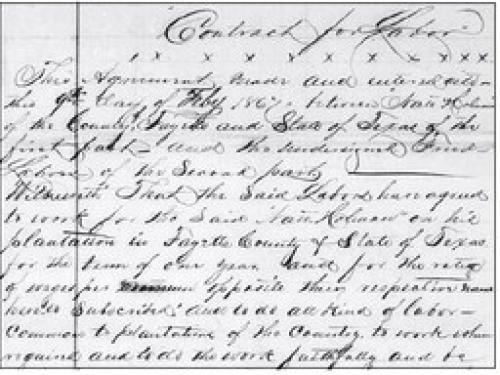 "Contract for Labor"
x x x x x x x x x x
This Agreement made and entered into
this 9th day of Feby 1867 between Nate Holman
of the County Fayette and State of Texas of the
first part and the undersigned Freed
Labors of the Second part,
Witnesseth That the Said Labors have agreed
to work for the Said Nate Holman on his
plantation in Fayette County & State of Texas
for the term of one year and for the rates
of wages per opposite their respective names
hereto Subscribed, and to do all kind of labor
common to plantations of the Country, to work when
required and to do the work faithfully and be